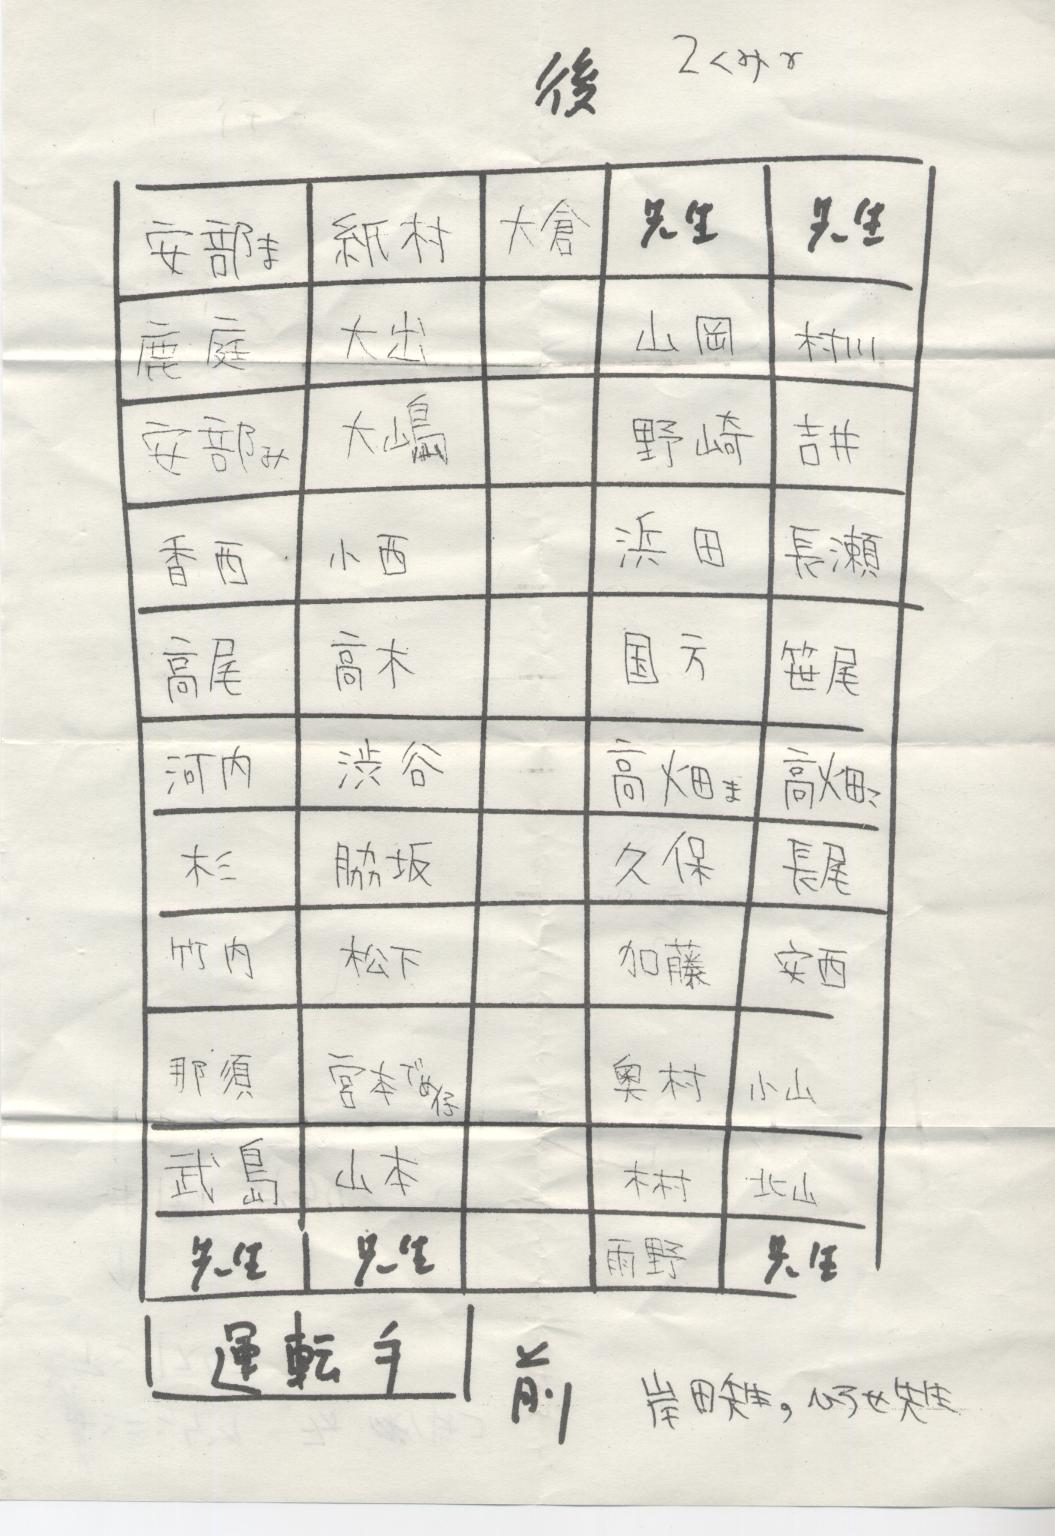 後 2くみ
安部ま 紙村 大倉 先生 先生
鹿庭 大出 山岡 村川
安部み 大嶋 野崎 吉井
香西 小西 浜田 長瀬
高尾 高木 国方 笹尾
河内 渋谷 高畑ま 高畑こ
杉 脇坂 久保 長尾
竹内 松下 加藤 安西
那須 宮本でめ仔 奥村 小山
武島 山本 木村 北山
先生 先生 雨野 先生
運転手 前 岸田先生, ひろせ先生